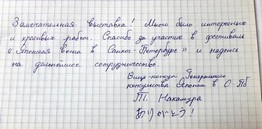 Замечательная выставка! Много было интересных
и красивых работ. Спасибо за участие в фестивале
«Японская весна в Санкт-Петербурге» и надеюсь
на дальнейшее сотрудничество
Вице-консул Генерального
консульства Японии в С-Пб
Т. Накамура
ありがとう!